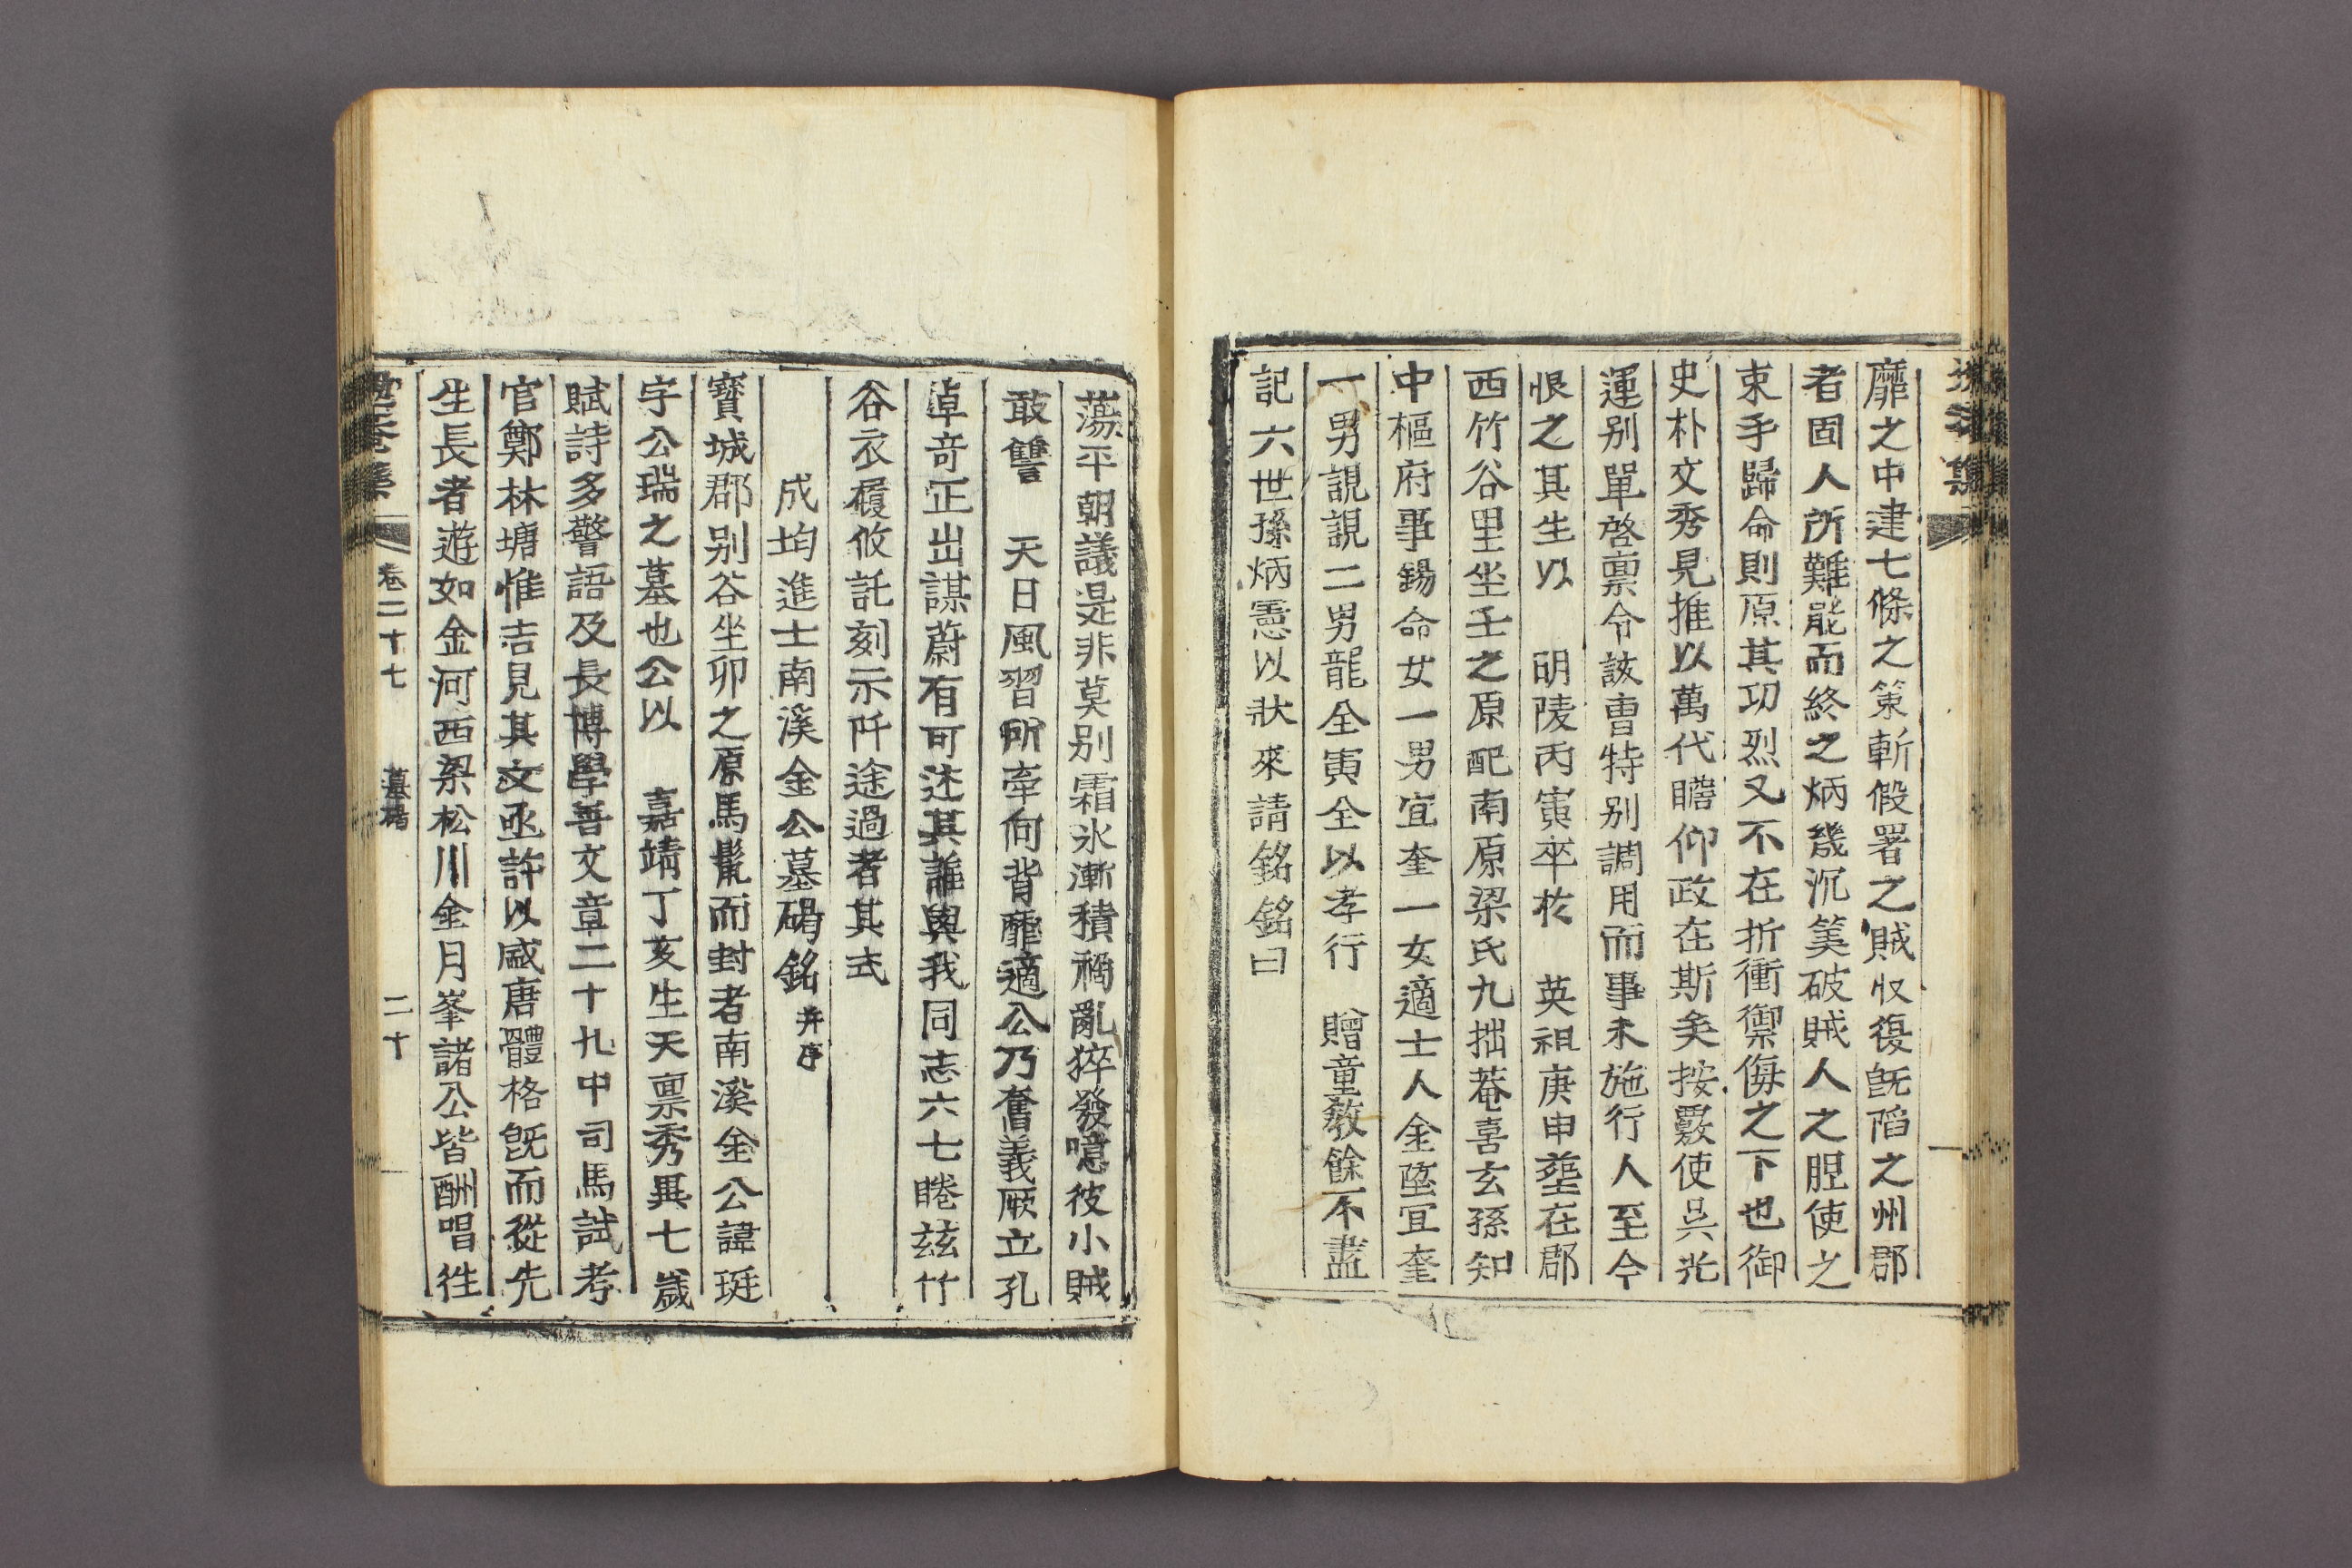 靡之中建七條之策斬假署之賊収復旣陷之州郡
者固人所難能而終之炳幾沉筭破賊人之膽使之
束手歸命則原其功烈又不在折衝禦侮之下也御
史朴文秀見推以萬代瞻仰政在斯矣按覈使吳光
運别單啓稟令該曺特别調用而事未施行人至今
恨之其生以 明陵丙寅卒於 英祖庚申葬在郡
西竹谷里坐壬之原配南原梁氏九拙菴喜玄孫知
中樞府事錫命女一男宜奎一女適士人金 宜奎
一男説説二男龍全寅全以孝行 贈童敎餘不盡
記六世孫炳憲以狀來請銘銘曰
蕩平朝議是非莫别霜氷漸積禍亂猝發噫彼小賊
敢讐 天日風習所牽向背靡適公乃奮義厥立孔
卓奇正出謀蔚有可述其誰與我同志六七睠玆竹
谷衣履攸託刻示阡途過者其式
成均進士南溪金公墓碣銘 并序
寶城郡别谷坐卯之原馬鬣而封者南溪金公諱珽
字公瑞之墓也公以 嘉靖丁亥生天禀秀異七歲
賦詩多警語及長博學善文章二十九中司馬試考
官鄭林塘惟吉見其文亟許以盛唐體格旣而從先
生長者遊如金河西梁松川金月峯諸公皆酬唱徃
卷二十七 墓碣 二十